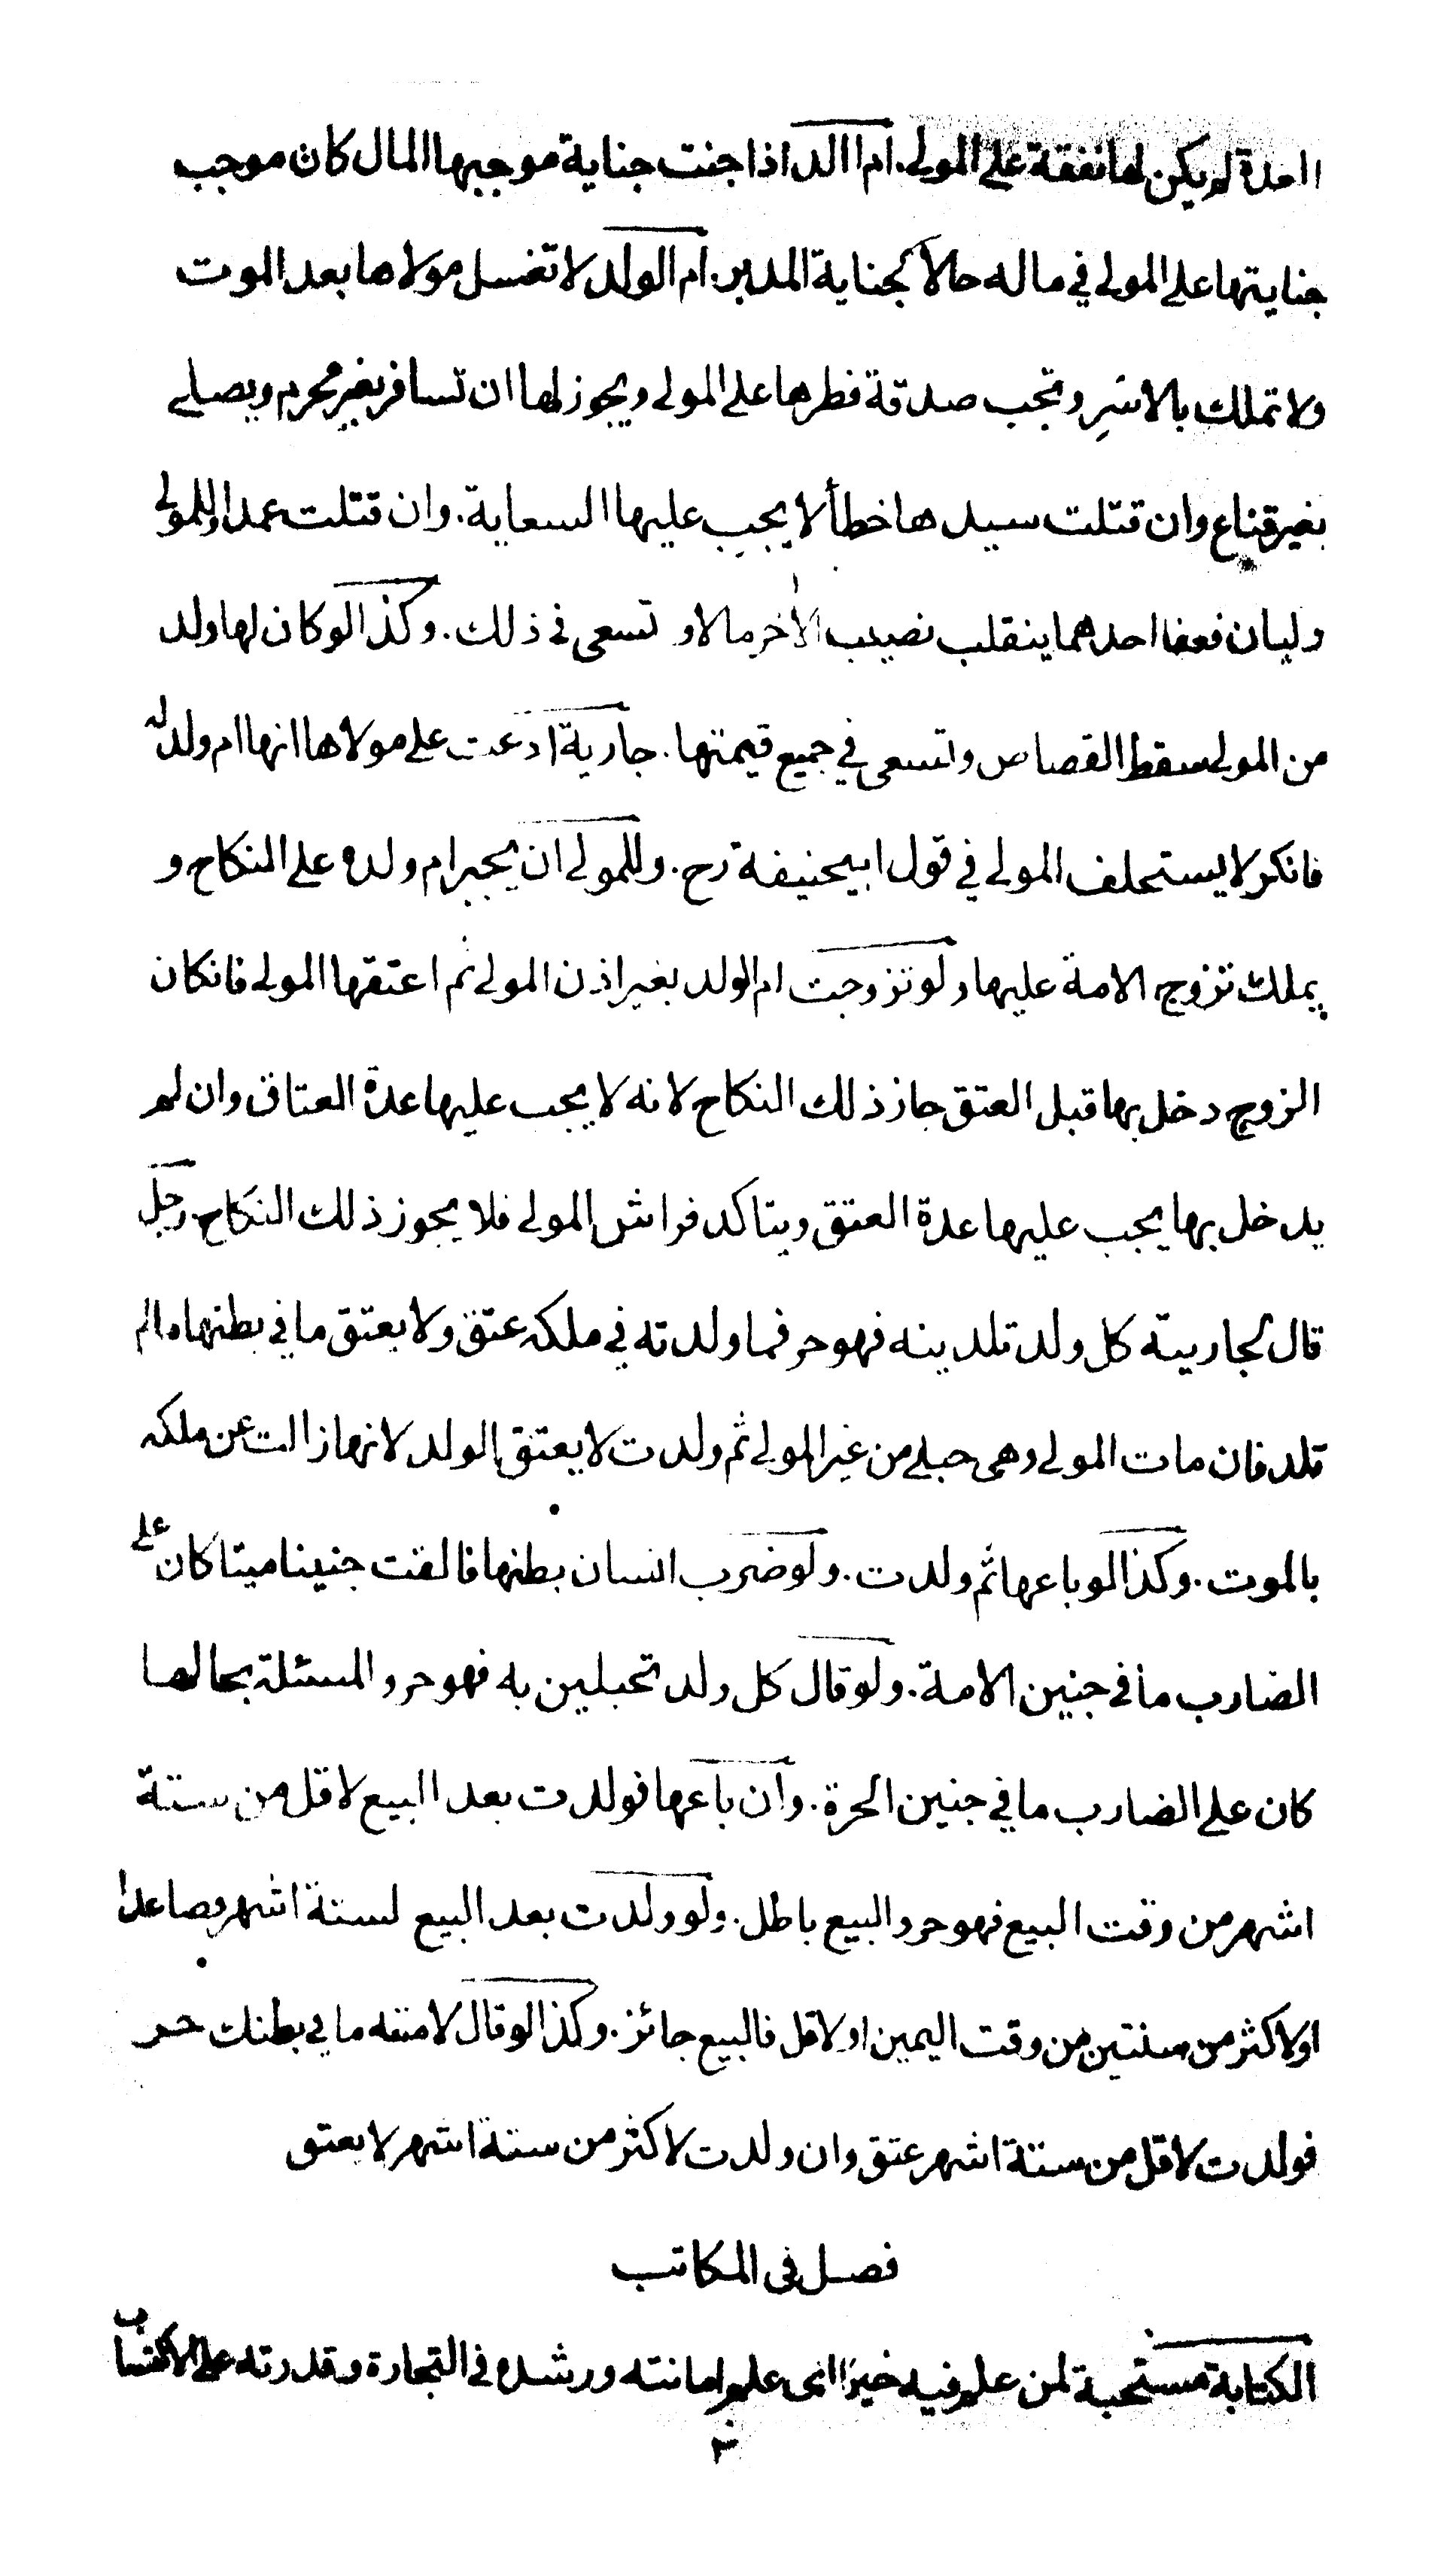 العدة لم يكن لها نفقة على المولى. ام الولد اذا جنت جناية موجبها المال كان موجب
جنايتها على المولى في ماله حالا كجناية المدبر. ام الولد لا تغسل مولاها بعد الموت
ولا تملك بالاسر وتجب صدقة فطرها على المولى ويجوز لها ان تسافر بغير محرم ويصلى
بغير قناع وان قتلت سيدها خطأ لا يجب عليها السعاية. وان قتلت عمدا وللمولى
وليان فعفا احدهما ينقلب نصيب الاخر مالا و تسعى في ذلك. وكذا لو كان لها ولد
من المولى سقط القصاص وتسعى في جميع قيمتها. جارية ادعت على مولاها انها ام ولد له
فانكر لا يستحلف المولى في قول ابيحنيفة رح. وللمولى ان يجبر ام ولده على النكاح و
يملك تزوج الامة عليها ولو تزوجت ام الولد بغير اذن المولى ثم اعتقها المولى فانكان
الزوج دخل بها قبل العتق جاز ذلك النكاح لانه لا يجب عليها عدة العتاق وان لم
يدخل بها يجب عليها عدة العتق ويتاكد فراش المولى فلا يجوز ذلك النكاح. رجل
قال لجاريته كل ولد تلدينه فهو حر فما ولدته في ملكه عتق ولا يعتق ما في بطنها مالم
تلد فان مات المولى وهى حبلى من غير المولى ثم ولدت لا يعتق الولد لانها زالت عن ملكه
بالموت. وكذا لو باعها ثم ولدت. ولو ضرب انسان بطنها فالقت جنينا ميتا كان على
الضارب ما في جنين الامة. ولو قال كل ولد تحبلين به فهو حر والمسئلة بحالها
كان على الضارب ما في جنين الحرة. وان باعها فولدت بعد البيع لاقل من ستة
اشهر من وقت البيع فهو حر والبيع باطل. ولو ولدت بعد البيع لستة اشهر فصاعدا
او لاكثر من سنتين من وقت اليمين او لاقل فالبيع جائز. وكذا لو قال لامته ما في بطنك حر
فولدت لاقل من ستة اشهر عتق وان ولدت لاكثر من ستة اشهر لا يعتق
فصل في المكاتب
الكتابة مستحبة لمن علم فيه خيرا اى علم امانته ورشده في التجارة وقدرته على الاكتساب